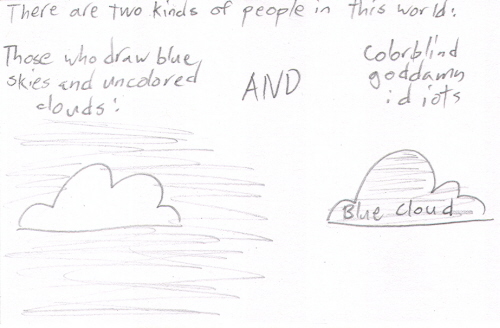 There are two kinds of people in this world:
Those who draw blue
skies and uncolored
clouds:
AND
colorblind
goddamn
idiots
Blue cloud